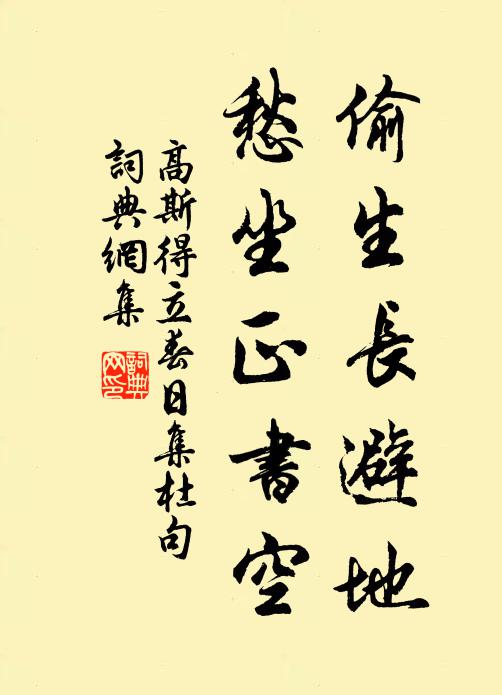 偷生長避地
愁坐正書空
高斯得立春日集杜句
詞典網集
詞典網印